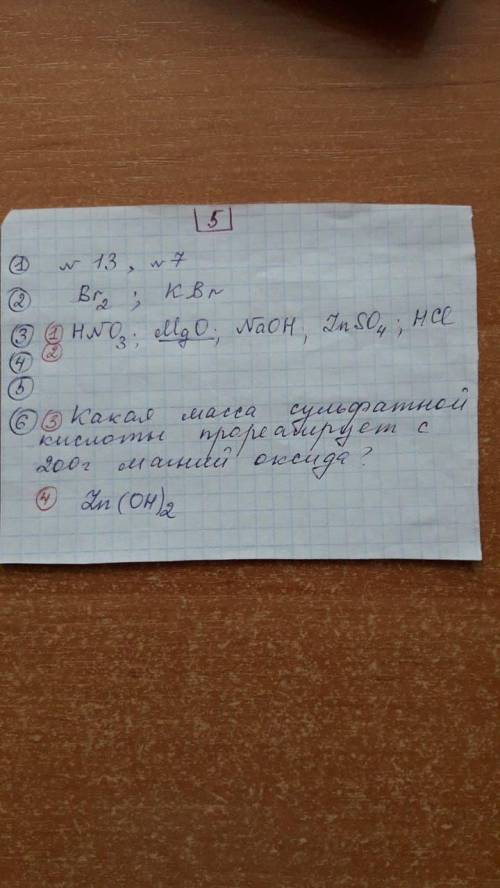 5
① N 13, N 7
② Br₂ ; KBr
③ ① HNO₃; MgO; NaOH; ZnSO₄; HCl
④ ②
⑤
⑥ ③ Какая масса сульфатной
кислоты прореагирует с
200г магний оксида?
④ Zn(OH)₂